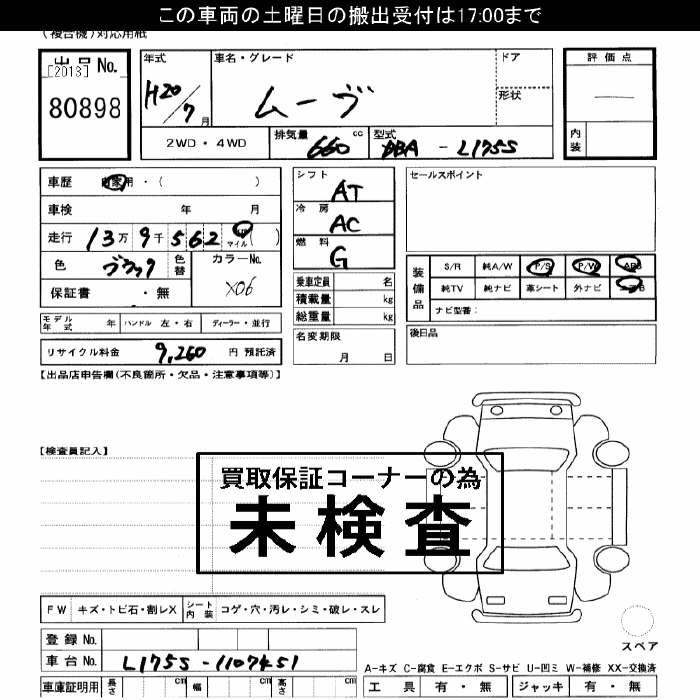 この車両の土曜日の搬出受付は17:00まで
(複合機)対応用紙
出品 No.
[2013]
80898
年式
H20/7月
車名・グレード
ムーヴ
ドア
形状
評価点
内装
2WD・4WD
排気量
660 cc
型式
DBA - L175S
車歴 自家用・( )
車検 年 月
走行 13万 9千 562 km マイル ( )
色 ブラック 色替
カラーNo.
X06
保証書 ・無
モデル年式 年 ハンドル 左・右 ディーラー・並行
リサイクル料金 9,260 円 預託済
シフト AT
冷房 AC
燃料 G
乗車定員 名
積載量 kg
総重量 kg
名変期限
月 日
セールスポイント
装備品
S/R 純A/W P/S P/W ABS
純TV 純ナビ 革シート 外ナビ エアB
ナビ型番:
後日品
【出品店申告欄(不良箇所・欠品・注意事項等)】
【検査員記入】
買取保証コーナーの為
未検査
FW キズ・トビ石・割レX シート内装 コゲ・穴・汚レ・シミ・破レ・スレ
登録 No.
車台 No. L175S-1107451
車庫証明用 長さ cm 幅 cm 高さ cm
スペア
A-キズ C-腐食 E-エクボ S-サビ U-凹ミ W-補修 XX-交換済
工具 有・無 ジャッキ 有・無